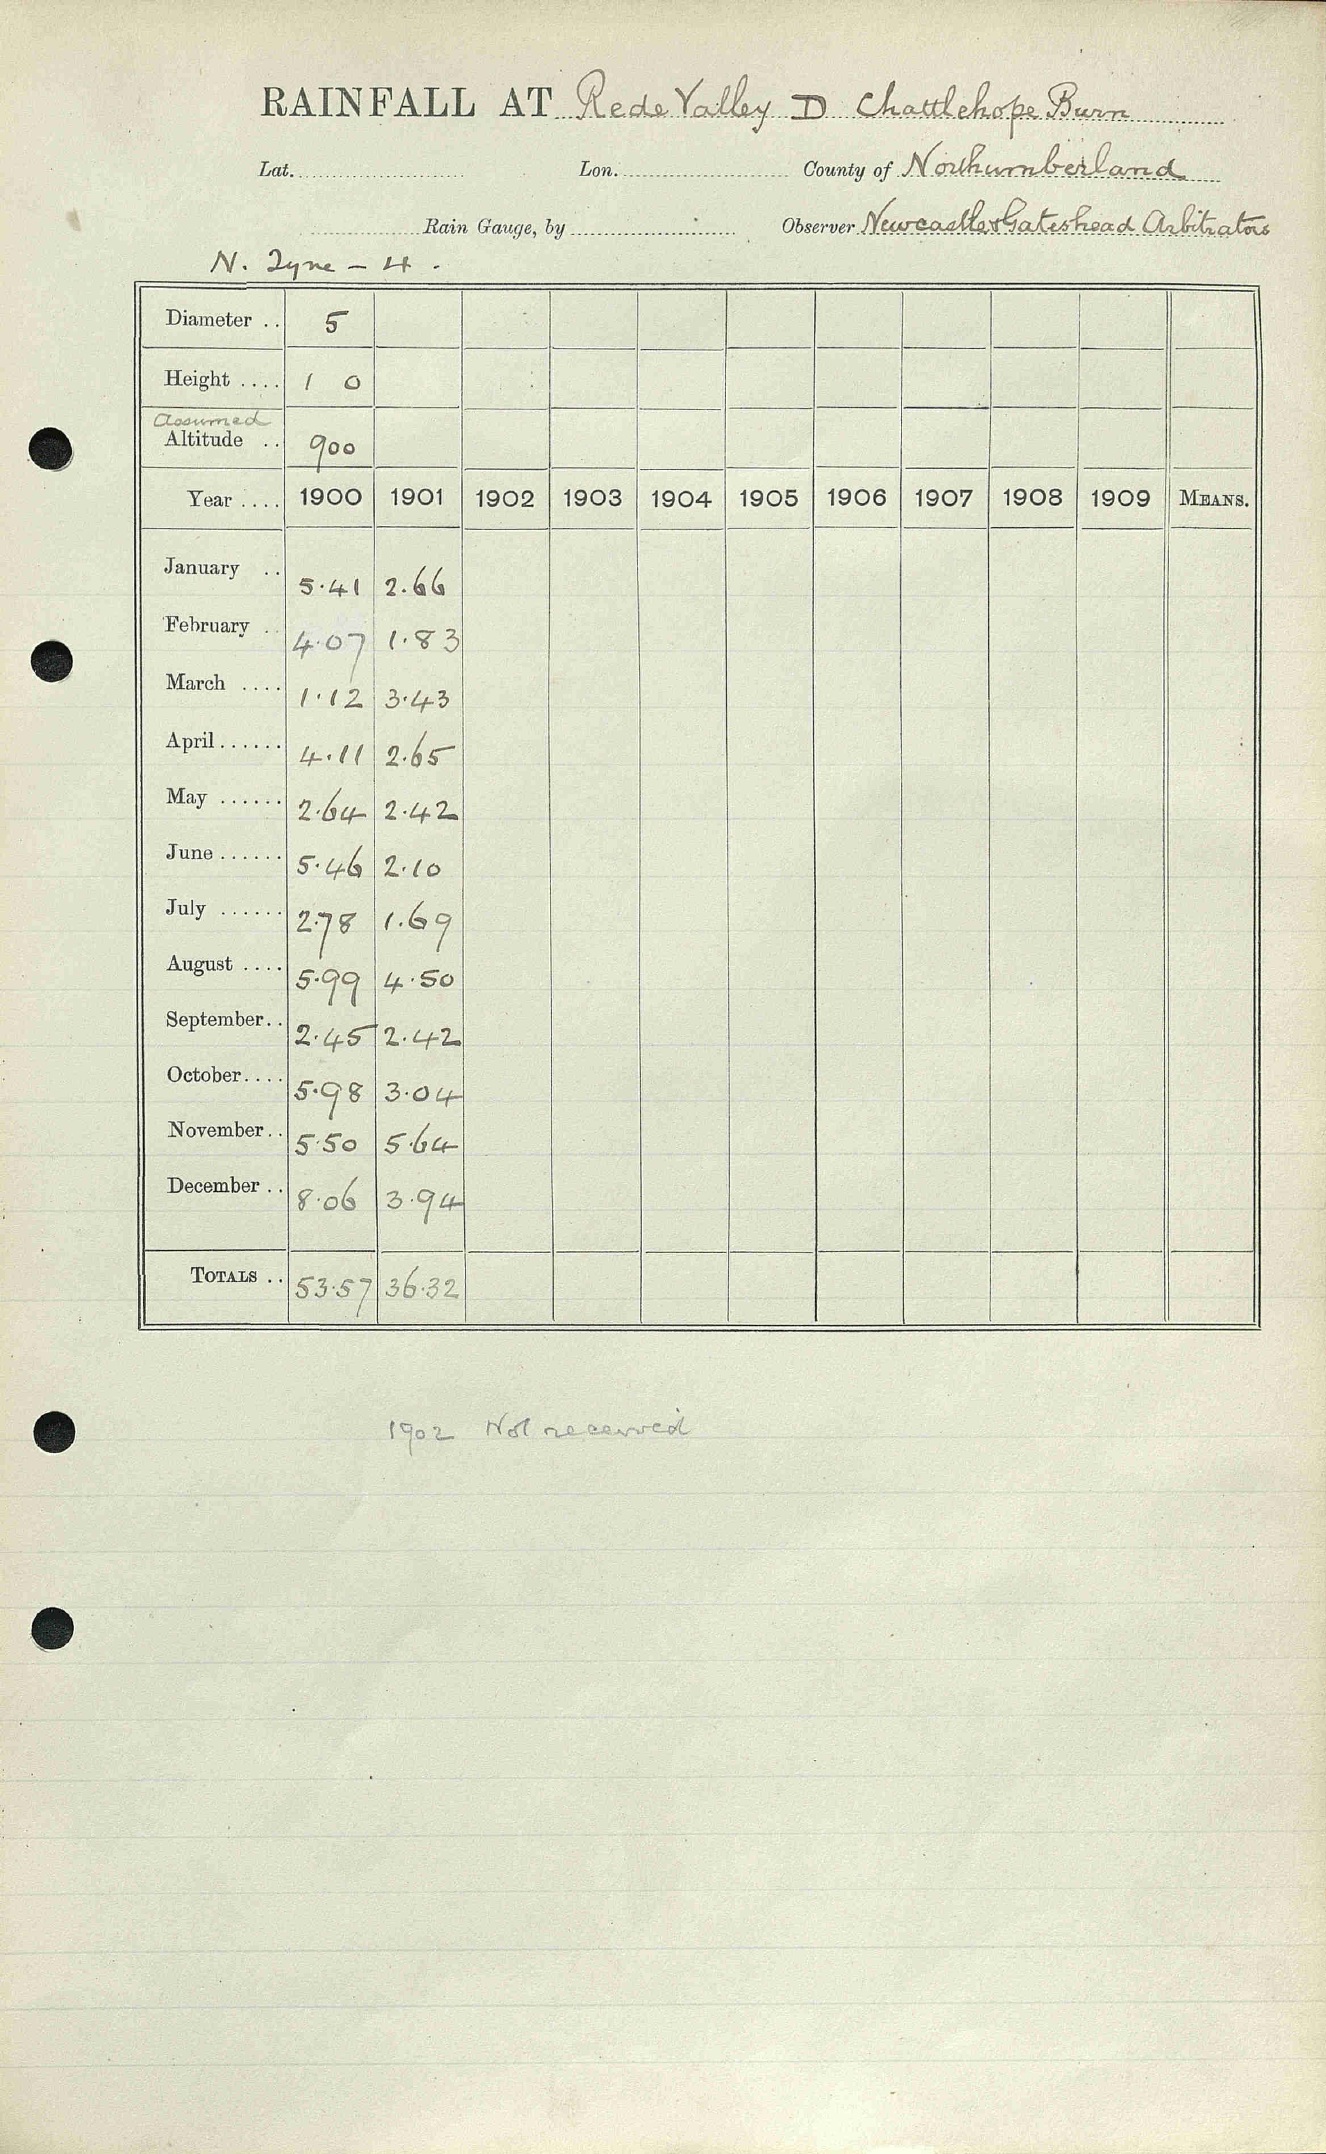 RAINFALL AT Rede Valley D Chattlehope Burn
Lat. Lon. County of Northumberland
Rain Gauge, by Observer Newcastle & Gateshead Arbitrators
N. Tyne - 4.
Diameter .. 5
Height .... 1 0
Assumed
Altitude .. 900
Year .... 1900 1901 1902 1903 1904 1905 1906 1907 1908 1909 MEANS.
January .. 5.41 2.66
February .. 4.07 1.83
March .... 1.12 3.43
April ...... 4.11 2.65
May ...... 2.64 2.42
June ...... 5.46 2.10
July ...... 2.78 1.69
August .... 5.99 4.50
September.. 2.45 2.42
October.... 5.98 3.04
November.. 5.50 5.64
December .. 8.06 3.94
TOTALS .. 53.57 36.32
1902 Not received